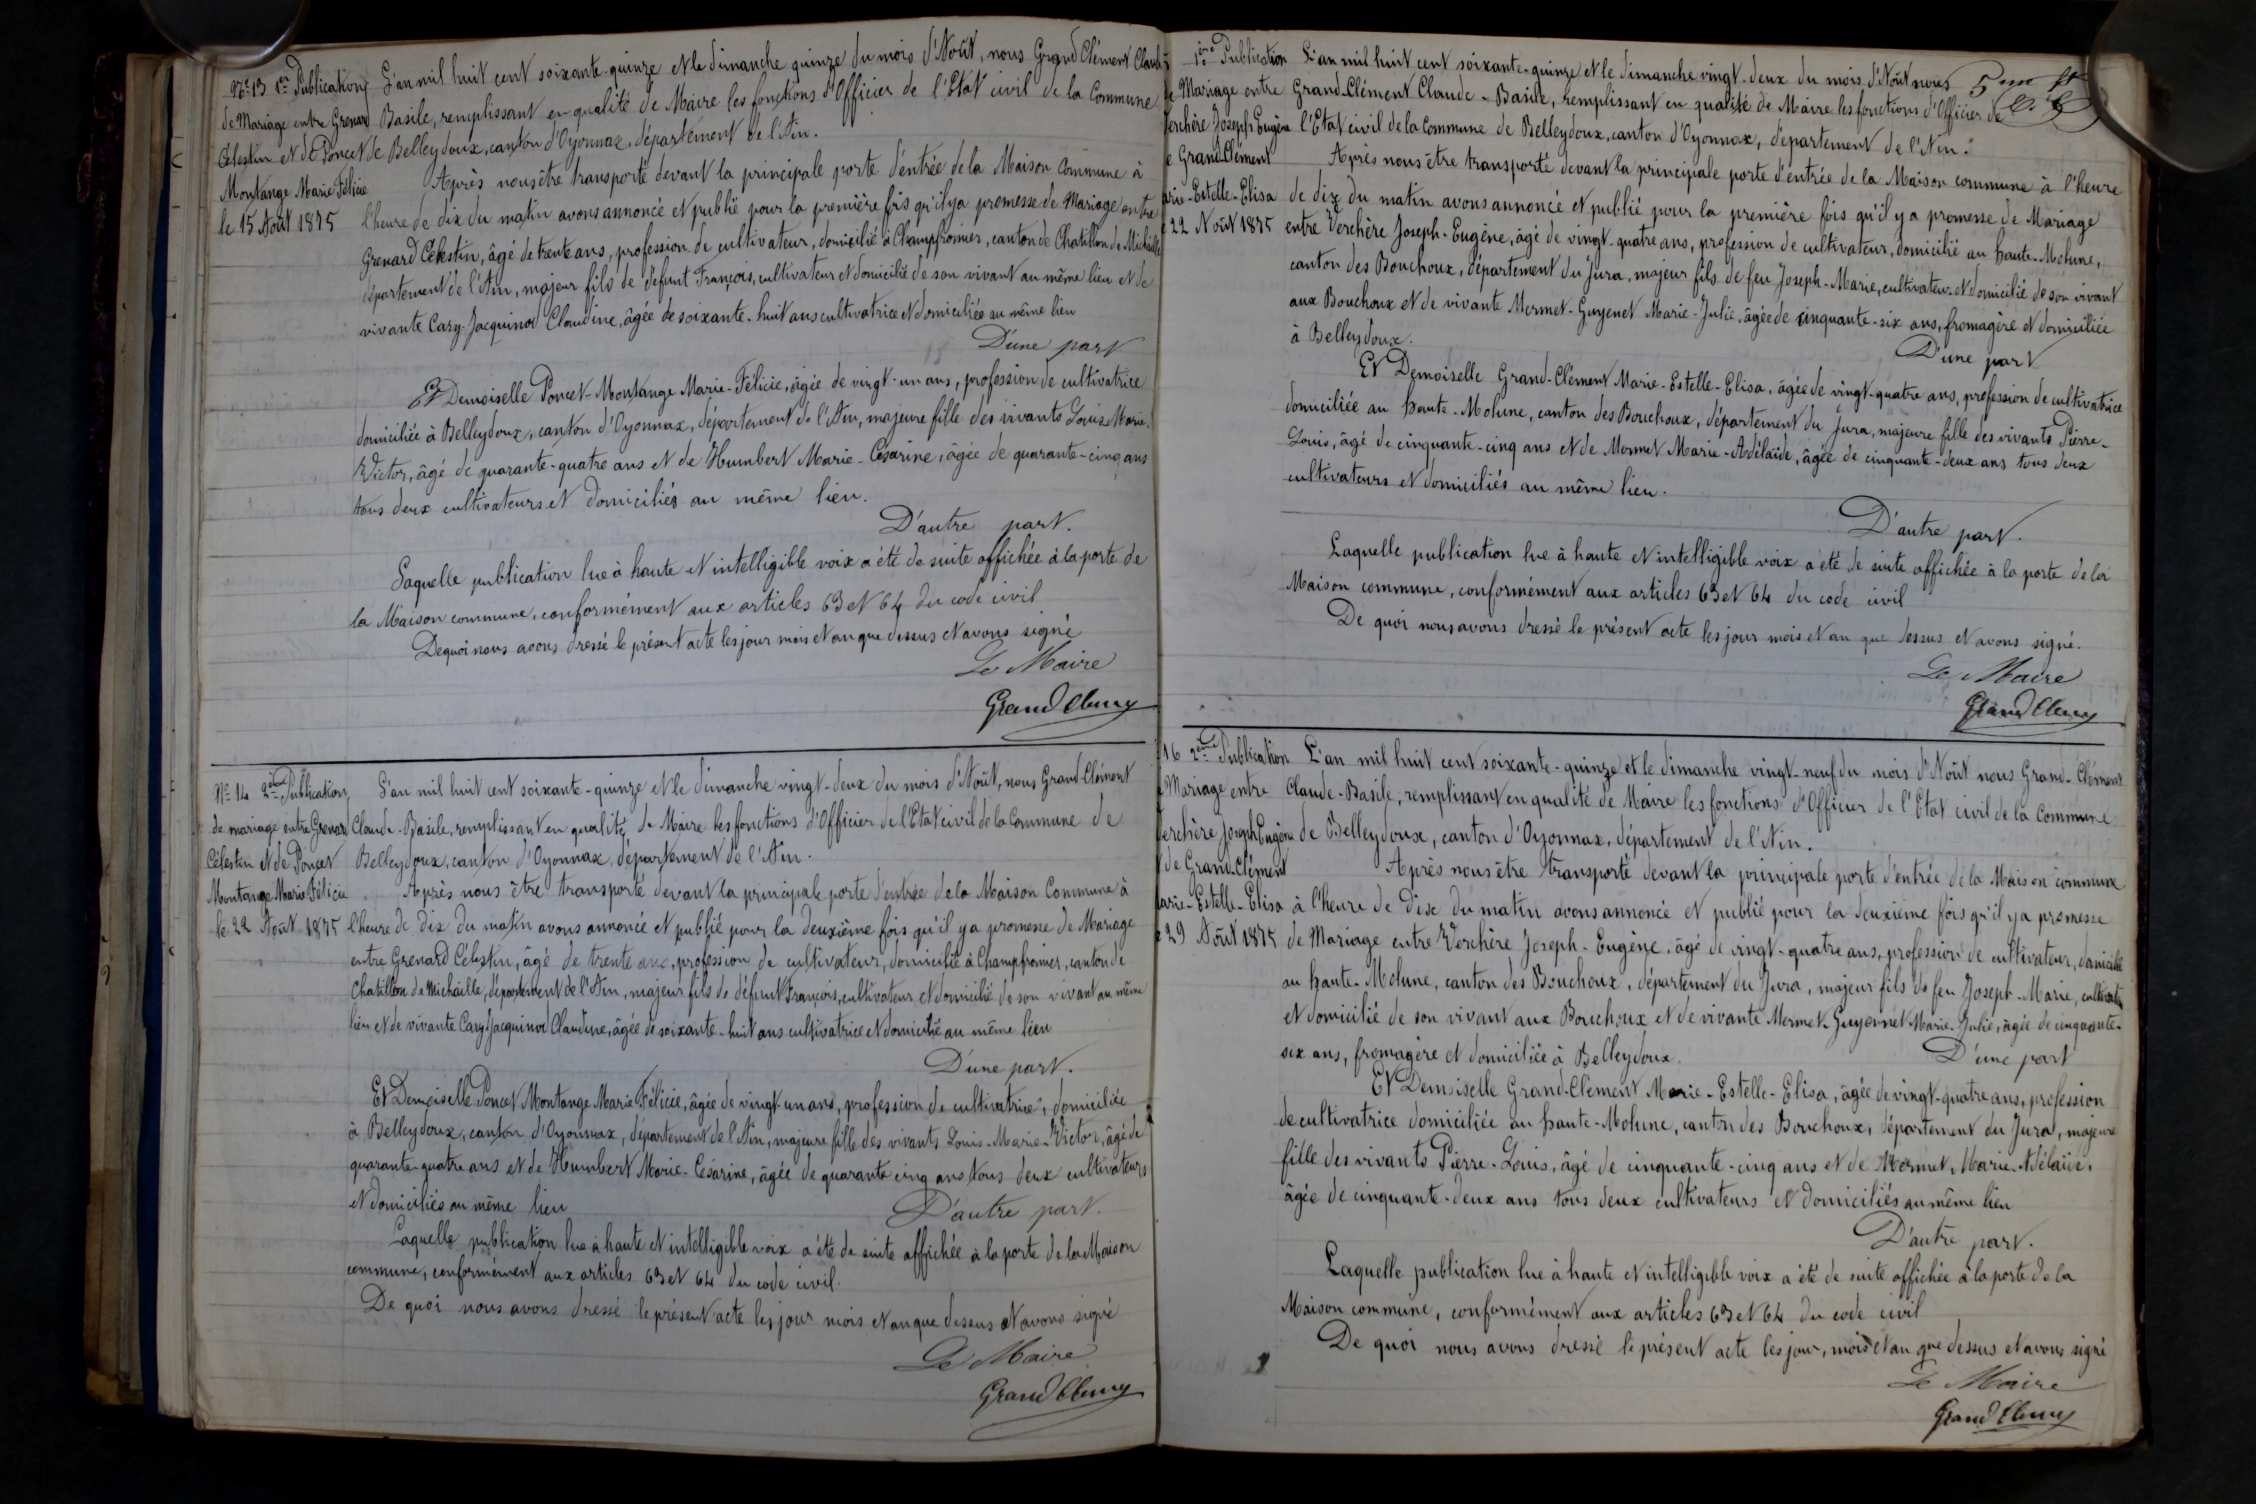 Nº 13 1ère Publication
de Mariage entre Grenard
Célestin et de Poncet
Montange Marie Félicie
le 15 Août 1875
L'an mil huit cent soixante-quinze et le dimanche quinze du mois d'Août, nous Grand Clément Claude
Basile, remplissant en qualité de Maire les fonctions d'Officier de l'État civil de la Commune
de Belleydoux, canton d'Oyonnax, département de l'Ain.
Après nous être transporté devant la principale porte d'entrée de la Maison Commune à
l'heure de dix du matin avons annoncé et publié pour la première fois qu'il y a promesse de Mariage entre
Grenard Célestin, âgé de trente ans, profession de cultivateur, domicilié à Champfromier, canton de Chatillon de Michaille
département de l'Ain, majeur fils de défunt François, cultivateur et domicilié de son vivant au même lieu et de
vivante Cary-Jacquinod Claudine, âgée de soixante-huit ans cultivatrice et domiciliée au même lieu
D'une part
Et Demoiselle Poncet-Montange Marie-Félicie, âgée de vingt-un ans, profession de cultivatrice
domiciliée à Belleydoux, canton d'Oyonnax, département de l'Ain, majeure fille des vivants Louis Marie
Victor, âgé de quarante-quatre ans et de Humbert Marie-Césarine, âgée de quarante-cinq ans
tous deux cultivateurs et domiciliés au même lieu.
D'autre part.
Laquelle publication lue à haute et intelligible voix a été de suite affichée à la porte de
la Maison commune, conformément aux articles 63 et 64 du code civil
De quoi nous avons dressé le présent acte les jour mois et an que dessus et avons signé
Le Maire
Grand Clemy
Nº 14 2ème Publication
de mariage entre Grenard
Célestin et de Poncet
Montange Marie Félicie
le 22 Août 1875
L'an mil huit cent soixante-quinze et le dimanche vingt-deux du mois d'Août, nous Grand-Clément
Claude-Basile, remplissant en qualité de Maire les fonctions d'Officier de l'Etat civil de la Commune de
Belleydoux, canton d'Oyonnax, département de l'Ain.
Après nous être transporté devant la principale porte d'entrée de la Maison Commune à
l'heure de dix du matin avons annoncé et publié pour la deuxième fois qu'il y a promesse de Mariage
entre Grenard Célestin, âgé de trente ans, profession de cultivateur, domicilié à Champfromier, canton de
Chatillon de Michaille, département de l'Ain, majeur fils de défunt François, cultivateur et domicilié de son vivant au même
lieu et de vivante Cary-Jacquinod Claudine, âgée de soixante-huit ans cultivatrice et domicilié au même lieu
D'une part.
Et Demoiselle Poncet Montange Marie Félicie, âgée de vingt-un ans, profession de cultivatrice, domiciliée
à Belleydoux, canton d'Oyonnax, département de l'Ain, majeure fille des vivants Louis-Marie-Victor, âgé de
quarante-quatre ans et de Humbert Marie-Césarine, âgée de quarante cinq ans tous deux cultivateurs
et domiciliés au même lieu
D'autre part.
Laquelle publication lue à haute et intelligible voix a été de suite affichée à la porte de la Maison
commune, conformément aux articles 63 et 64 du code civil.
De quoi nous avons dressé le présent acte les jour mois et an que dessus et avons signé
Le Maire
Grand Clemy
1ère Publication
de Mariage entre
Verchère Joseph Eugène
de Grand-Clément
arie-Estelle-Elisa
22 Août 1875
5me ft
L'an mil huit cent soixante-quinze et le dimanche vingt-deux du mois d'Août nous
Grand-Clément Claude-Basile, remplissant en qualité de Maire les fonctions d'Officier de
l'Etat civil de la Commune de Belleydoux, canton d'Oyonnax, département de l'Ain.
Après nous être transporté devant la principale porte d'entrée de la Maison commune à l'heure
de dix du matin avons annoncé et publié pour la première fois qu'il y a promesse de Mariage
entre Verchère Joseph-Eugène, âgé de vingt-quatre ans, profession de cultivateur, domicilié au haute-Molune,
canton des Bouchoux, département du Jura, majeur fils de feu Joseph-Marie, cultivateur et domicilié de son vivant
aux Bouchoux et de vivante Mermet-Guyenet Marie-Julie, âgée de cinquante-six ans, fromagère et domiciliée
à Belleydoux.
D'une part
Et Demoiselle Grand-Clément Marie-Estelle-Elisa, âgée de vingt-quatre ans, profession de cultivatrice
domiciliée au haute-Molune, canton des Bouchoux, département du Jura, majeure fille des vivants Pierre-
Louis, âgé de cinquante-cinq ans et de Mermet Marie-Adélaïde, âgée de cinquante-deux ans tous deux
cultivateurs et domiciliés au même lieu.
D'autre part.
Laquelle publication lue à haute et intelligible voix a été de suite affichée à la porte de la
Maison commune, conformément aux articles 63 et 64 du code civil
De quoi nous avons dressé le présent acte les jour mois et an que dessus et avons signé.
Le Maire
Grand Clemy
16 2ème Publication
Mariage entre
Verchère Joseph Eugène
de Grand-Clément
arie-Estelle-Elisa
29 Août 1875
L'an mil huit cent soixante-quinze et le dimanche vingt-neuf du mois d'Août nous Grand-Clément
Claude-Basile, remplissant en qualité de Maire les fonctions d'Officier de l'Etat civil de la Commune
de Belleydoux, canton d'Oyonnax, département de l'Ain.
Après nous être transporté devant la principale porte d'entrée de la Maison commune
à l'heure de dix du matin avons annoncé et publié pour la deuxième fois qu'il y a promesse
de Mariage entre Verchère Joseph-Eugène, âgé de vingt-quatre ans, profession de cultivateur, domicilié
au haute-Molune, canton des Bouchoux, département du Jura, majeur fils de feu Joseph-Marie, cultivateur
et domicilié de son vivant aux Bouchoux et de vivante Mermet-Guyennet Marie-Julie, âgée de cinquante-
six ans, fromagère et domiciliée à Belleydoux.
D'une part
Et Demoiselle Grand-Clément Marie-Estelle-Elisa, âgée de vingt-quatre ans, profession
de cultivatrice domiciliée au haute-Molune, canton des Bouchoux, département du Jura, majeure
fille des vivants Pierre-Louis, âgé de cinquante-cinq ans et de Mermet, Marie-Adélaïde,
âgée de cinquante-deux ans tous deux cultivateurs et domiciliés au même lieu
D'autre part.
Laquelle publication lue à haute et intelligible voix a été de suite affichée à la porte de la
Maison commune, conformément aux articles 63 et 64 du code civil
De quoi nous avons dressé le présent acte les jour, mois et an que dessus et avons signé
Le Maire
Grand Clemy